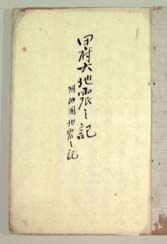 甲府大地震之記
附他国地震之記